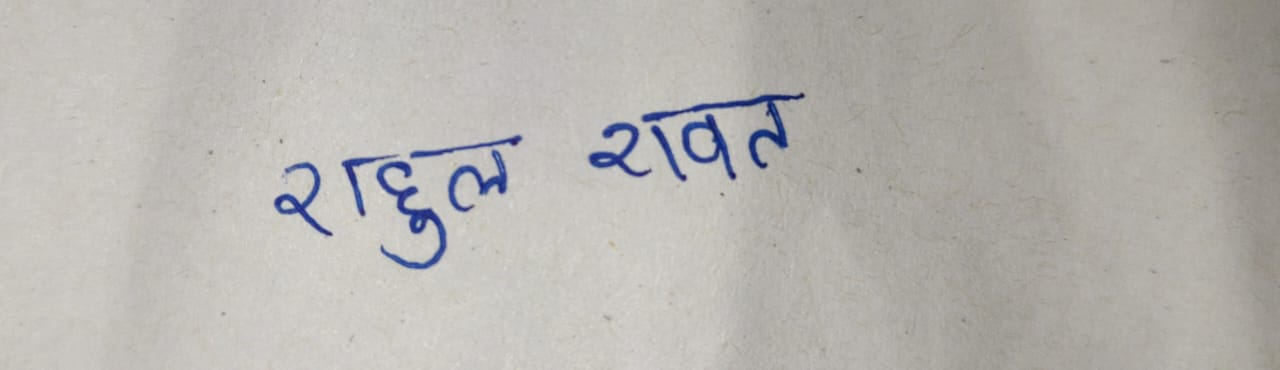 राहुल रावत